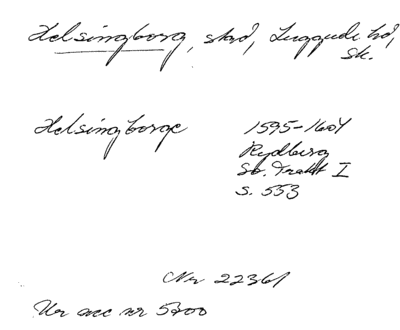 Helsingborg, stad, Luggude hd,
Sk.
Helsingborge 1595-1604
Rydberg
Sv. Trakt I
s. 553
Nr 22361
Ur acc nr 5200